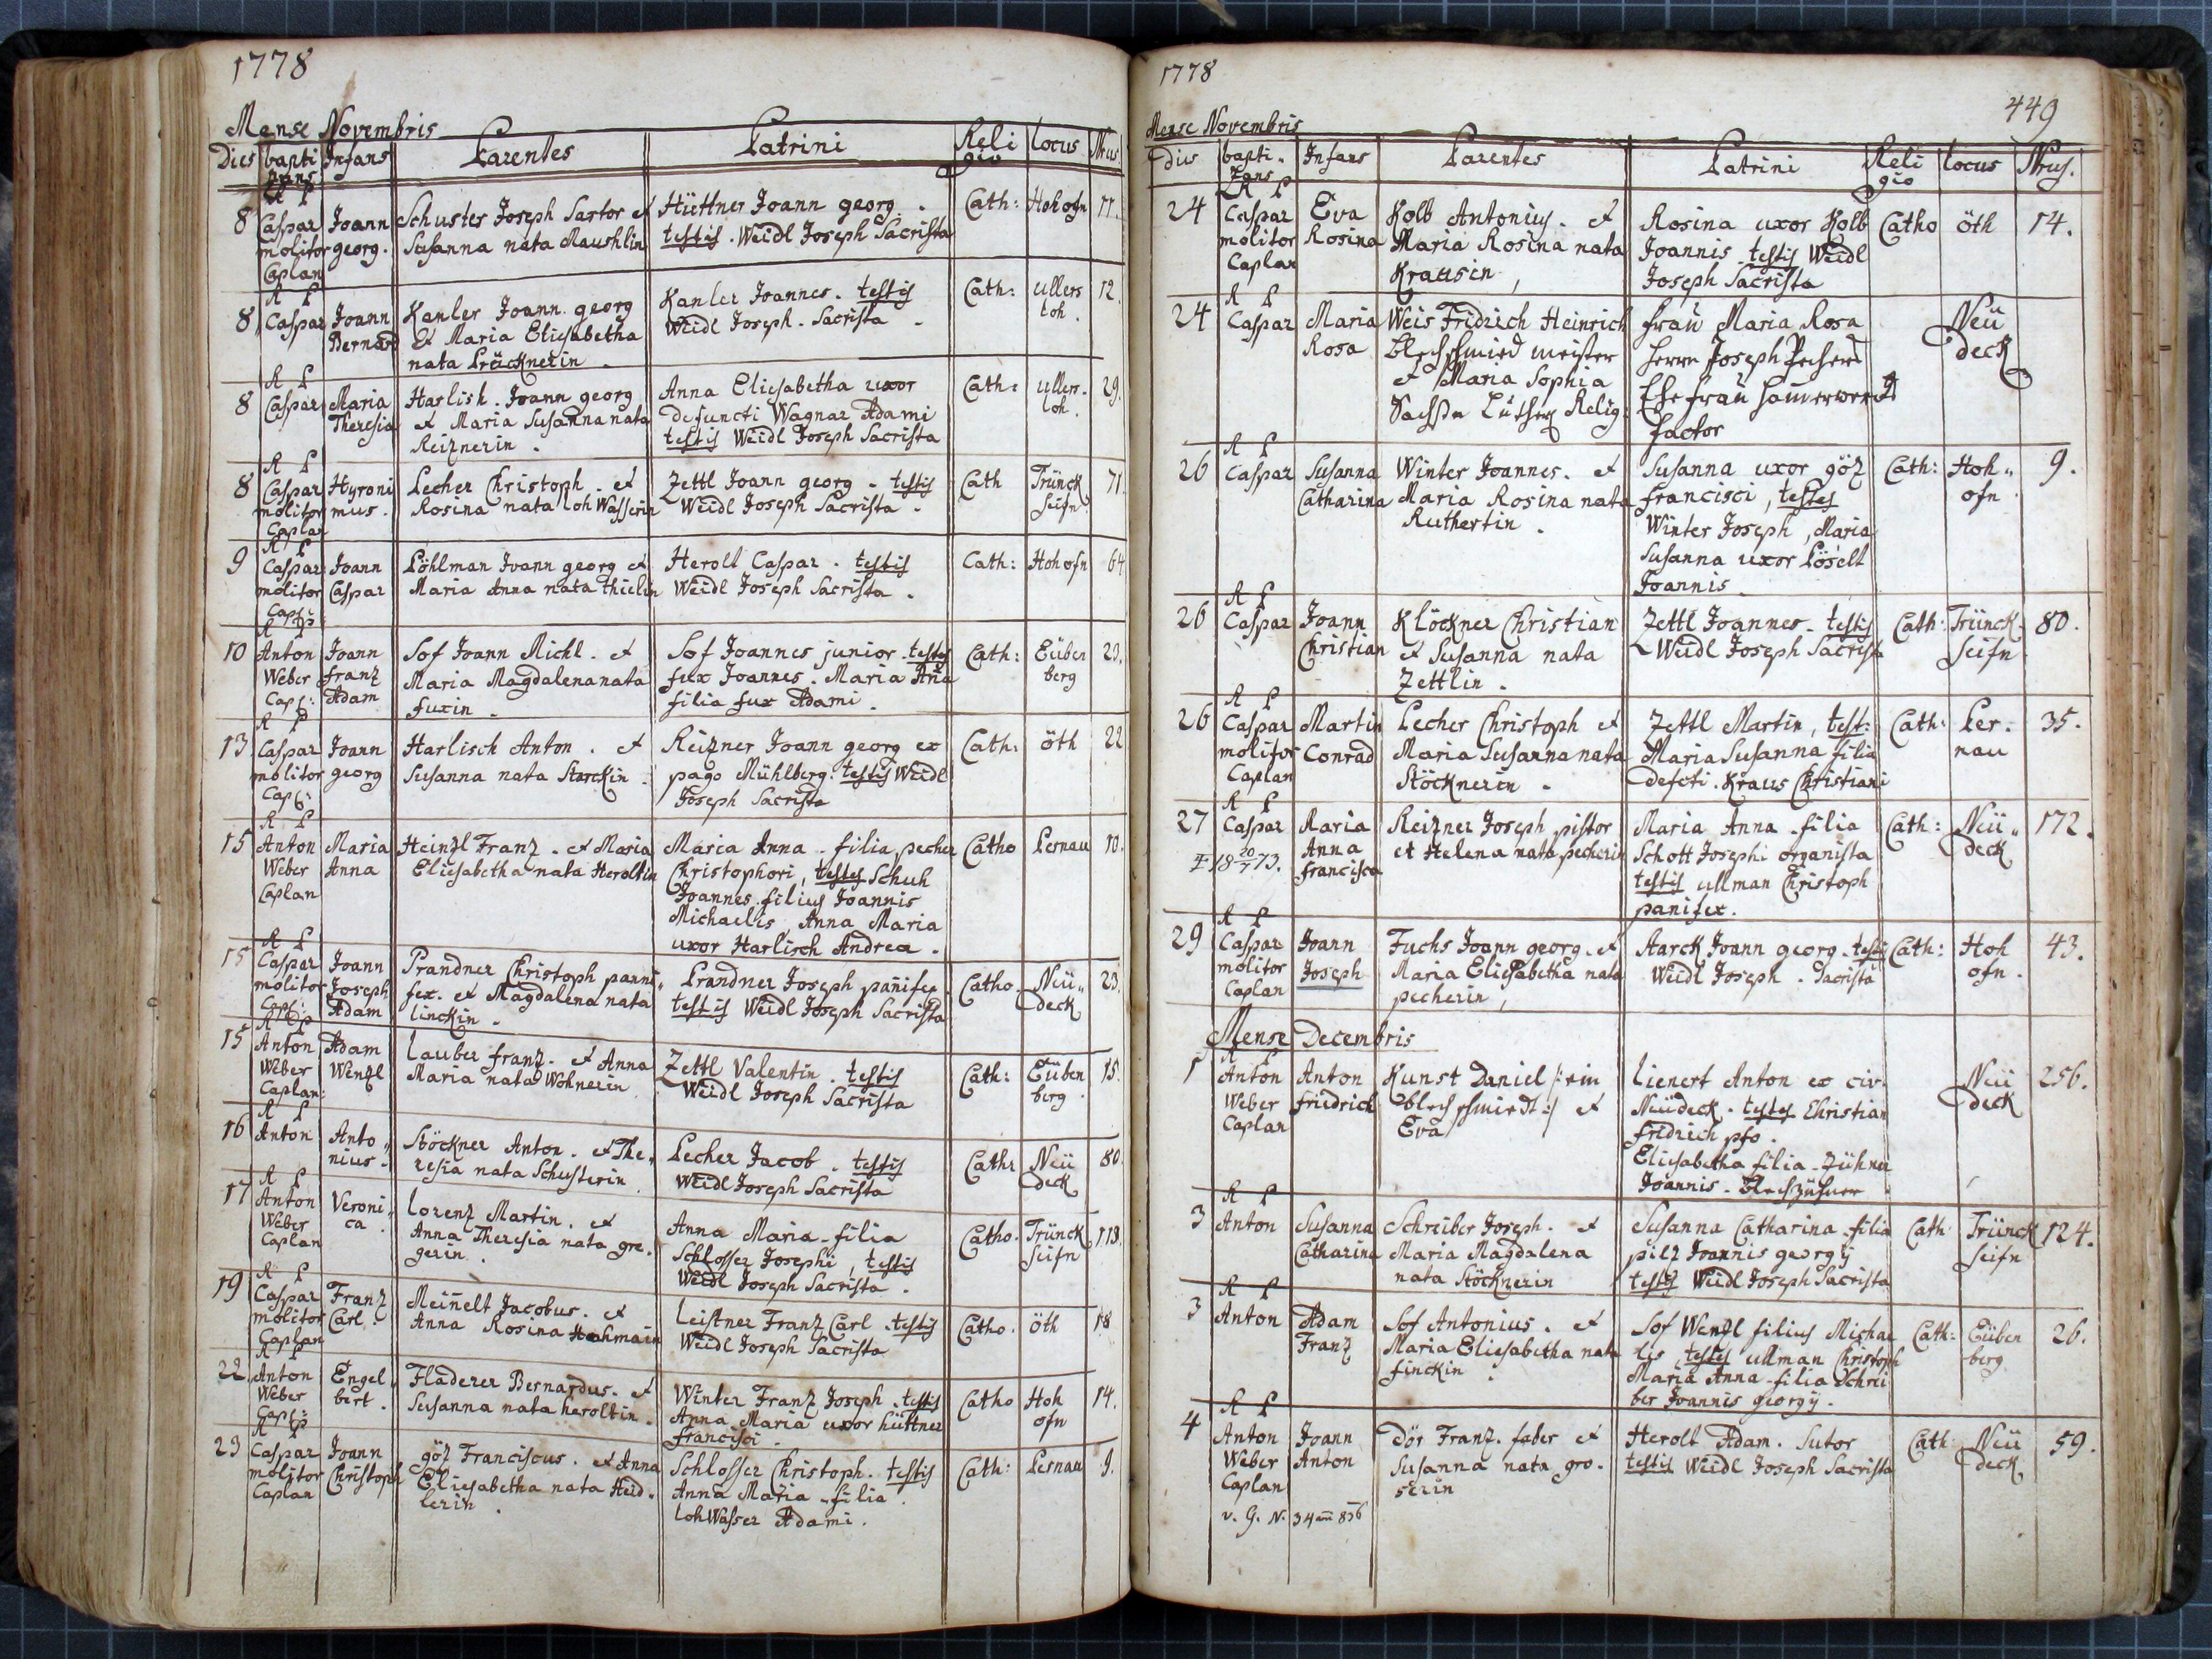 1778
Mense Novembris
Dies bapti Infans Parentes Patrini Reli locus Nrus.
zans gio
R P
8 Caspar Joann Schuster Joseph Sartor et Hüttner Joann georg . Cath: Hohofn 11.
molitor georg. Susanna nata Maushlin testis . Weidl Joseph Sacrista
Caplan
R P
8 Caspar Joann Kanler Joann georg Kanler Joannes . testis Cath: ullers 12.
Bernard et Maria Eliesabetha Weidl Joseph . Sacrista . loh.
nata Präcknerin .
R P
8 Caspar Maria Harlish . Joann georg Anna Eliesabetha uxor Cath: ullers- 29.
Theresia et Maria Susanna nata defuncti Wagnar Adami loh.
Reiznerin . testis Weidl Joseph Sacrista
R P
8 Caspar Hyroni Lecher Christoph . et Zettl Joann georg . testis Cath Trünck 71.
molitor mus . Rosina nata loh Wasserin Weidl Joseph Sacrista . seifn
Caplan
R P
9 Caspar Joann Löhlman Joann georg et Herolt Caspar . testis Cath: Hohofn 64
molitor Caspar Maria Anna nata thielin Weidl Joseph Sacrista .
Capl:
R P
10 Anton Joann Sof Joann Michl . et Sof Joannes junior . testes Cath: Eüben 23.
Weber franz Maria Magdalena nata fux Joannes . Maria Ana berg
Capl: Adam fuxin . filia fux Adami .
R P
13 Caspar Joann Harlisch Anton . et Reizner Joann georg ex Cath: öth 22
molitor georg Susanna nata Starckin . pago Mühlberg . testis Weidl
Capl: Joseph Sacrista
R P
15 Anton Maria Heinzl Franz . et Maria Maria Anna . filia pecher Catho Pernau 10.
Weber Anna Eliesabetha nata Heroltin Christophori , testes Schuh
Caplan Joannes filius Joannis
Michaelis , Anna Maria
uxor Harlisch Andrea .
R P
15 Caspar Joann Prandner Christoph panni„ Prandner Joseph pañifex . Catho . Neü„ 23.
molitor Joseph fex . et Magdalena nata testis Weidl Joseph Sacrista deck
Capl: Adam linckin .
R P
15 Anton Adam Lauber franz . et Anna Zettl Valentin . testis Cath: Eüben 15.
Weber Wenzl Maria nata Wohnerin Weidl Joseph Sacrista berg .
Caplan:
R P
16 Anton Anto„ Stöckner Anton . et The„ Lecher Jacob . testis Cath: Neü 80.
nius . resia nata Schusterin Weidl Joseph Sacrista deck
R P
17 Anton Veroni„ Lorenz Martin . et Anna Maria . filia Catho . Trünck 113.
Weber ca . Anna Theresia nata gre- Schlosser Josephi , testis seifn
Caplan gerin . Weidl Joseph Sacrista .
R P
19 Caspar Franz Meiñelt Jacobus . et Leistner Franz Carl . testis Catho . öth 18
molitor Carl . Anna Rosina Weidl Joseph Sacrista
Caplan
R P
22. Anton Engel„ Fladerer Bernardus . et Winter Franz Joseph . testes Catho Hoh 14.
Weber bert . Susanna nata heroltin . Anna Maria uxor hüttner ofn
Capl: francisci .
R P
23 Caspar Joann göz Franciscus . et Anna Schlosser Christoph . testis Cath: Pernau 9.
molitor Christoph Eliesabetha nata Heid- Anna Maria . filia .
Caplan lerin . lohWasser Adami .
1778
449
Mense Novembris
Dies bapti„ Infans Parentes Patrini Reli locus Nrus.
zans gio
R P
24 Caspar Eva Kolb Antonius . et Rosina uxor Kolb Catho öth 14.
molitor Rosina Maria Rosina nata Joannis . testis Weidl
Caplan Krausin , Joseph Sacrista
R P
24 Caspar Maria Weis Fridrich Heinrich frau Maria Rosa Neü
Rosa blechschmied meister herrn Joseph Pecherd deck
et Maria Sophia Ehefrau
Luther Relig: factor
R P
26 Caspar Susanna Winter Joannes . et Susanna uxor göz Cath: Hoh„ 9.
Catharina Maria Rosina nata francisci , testes ofn
Ruthertin . Winter Joseph , Maria
Susanna uxor Löselt
Joannis .
R P
26 Caspar Joann Klöckner Christian Zettl Joannes . testis Cath: Trünck- 80.
Christian et Susanna nata Weidl Joseph Sacrista seifn
Zettlin .
R P
26 Caspar Martin Lecher Christoph et Zettl Martin , test: Cath: Per- 35.
molitor Conrad Maria Susanna nata Maria Susanna filia nau
Caplan Stöcknerin . defcti . Kraus Christiani
R P
27 Caspar Maria Reizner Joseph pistor Maria Anna . filia Cath: Neü„ 172.
Anna et Helena nata pecherin Schott Josephi organista deck
† 18 20/7 73. francisca testis ullman Christoph
panifex .
R P
29 Caspar Joann Fuchs Joann georg . et Starck Joann georg . testis Cath: Hoh 43.
molitor Joseph Maria Eliesabetha nata Weidl Joseph . Sacrista ofn .
Caplan pecherin ,
Mense Decembris
R P
1 Anton Anton Kunst Daniel /: ein Lienert Anton ex civ. Neü 256.
Weber fridrich blechschmiedt :/ et Neüdeck . testes Christian deck
Caplan Eva fridrich pfo .
Eliesabetha filia . Zühner
Joannis . blechzühner
R P
3 Anton Susanna Schreiber Joseph . et Susanna Catharina . filia Cath: Trünck 124.
Catharina Maria Magdalena pilz Joannis georgÿ seifn
nata Stöcknerin testis Weidl Joseph Sacrista
R P
3 Anton Adam Sof Antonius . et Sof Wenzl filius Michae Cath: Eüben 26.
Franz Maria Eliesabetha nata lis , testes ullman Christoph berg
finckin . Maria Anna . filia Schrei
ber Joannis georgÿ .
R P
4 Anton Joann Dör Franz . faber et Herolt Adam . Sutor Cath: Neü 59.
Weber Anton Susanna nata gro- testis Weidl Joseph Sacrista deck
Caplan serin
v. G. N. 34 856